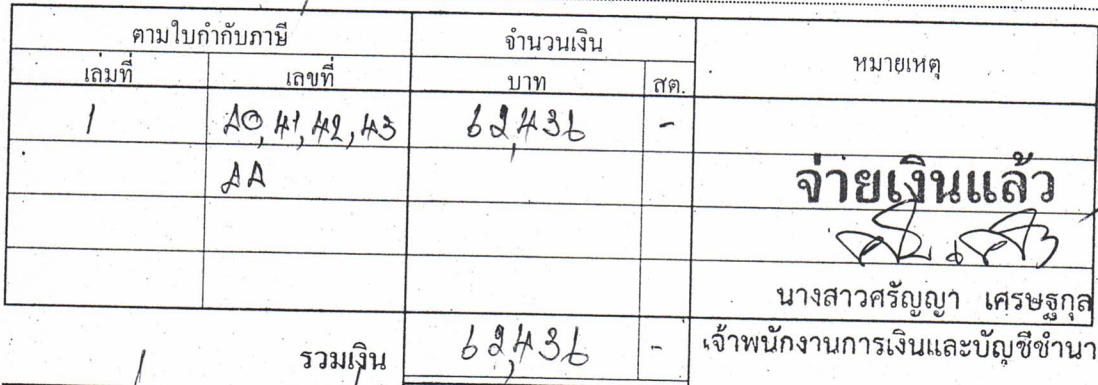 ตามใบกำกับภาษี จำนวนเงิน หมายเหตุ
เล่มที่ เลขที่ บาท สต.
1 40, 41, 42, 43 62,436 -
44
จ่ายเงินแล้ว
นางสาวศรัญญา เศรษฐกุล
รวมเงิน 62,436 - เจ้าพนักงานการเงินและบัญชีชำนา